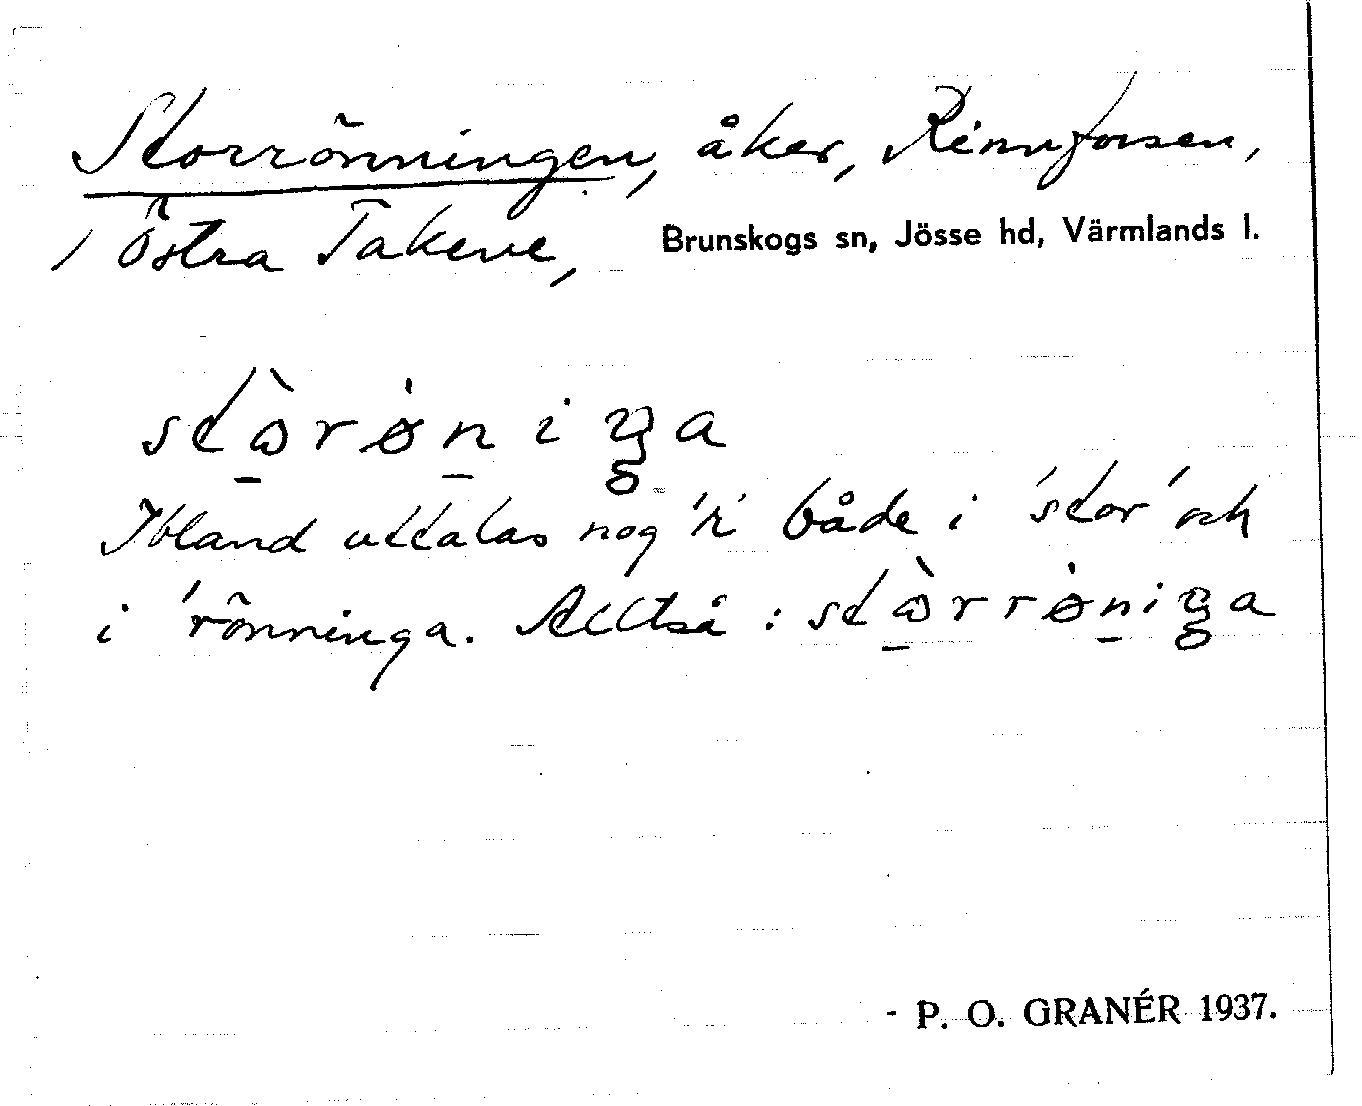 Storrönningen, åker, Rinnforsen,
Östra Takene, Brunskogs sn, Jösse hd, Värmlands l.
stɷ̀rø̀niŋa
Ibland uttalas nog 'r' både i 'stor' och
i 'rönninga. Alltså : stɷ̀rrø̀niŋa
- P. O. GRANÉR 1937.